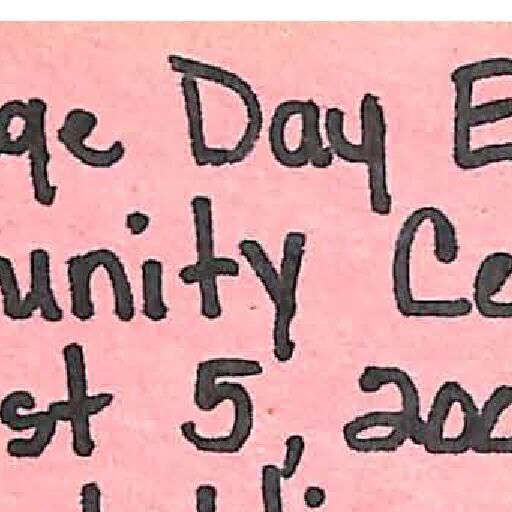 ge Day E
unity Ce
st 5, 200